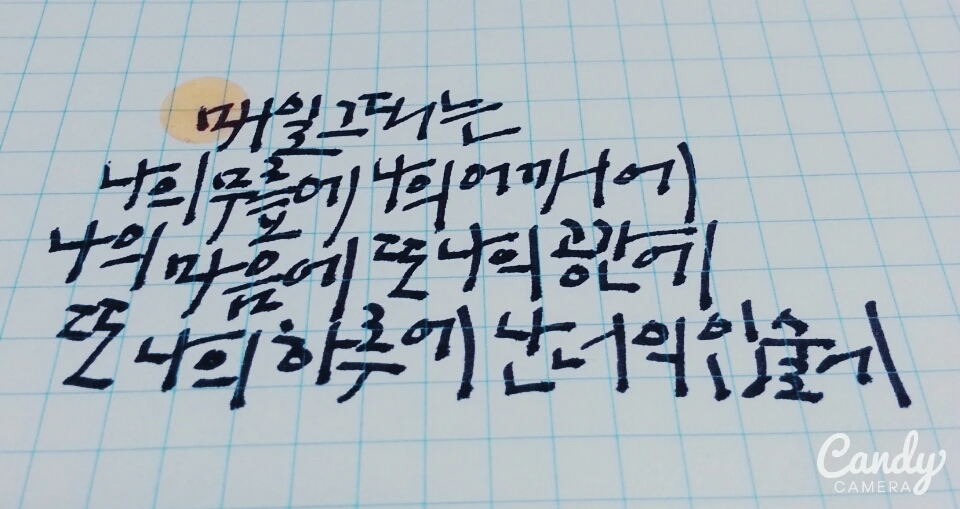 매일 그때는
나의 무릎에 나의 어깨에
나의 마음에 또 나의 공간에
또 나의 하루에 난 너의 입술에
Candy
CAMERA